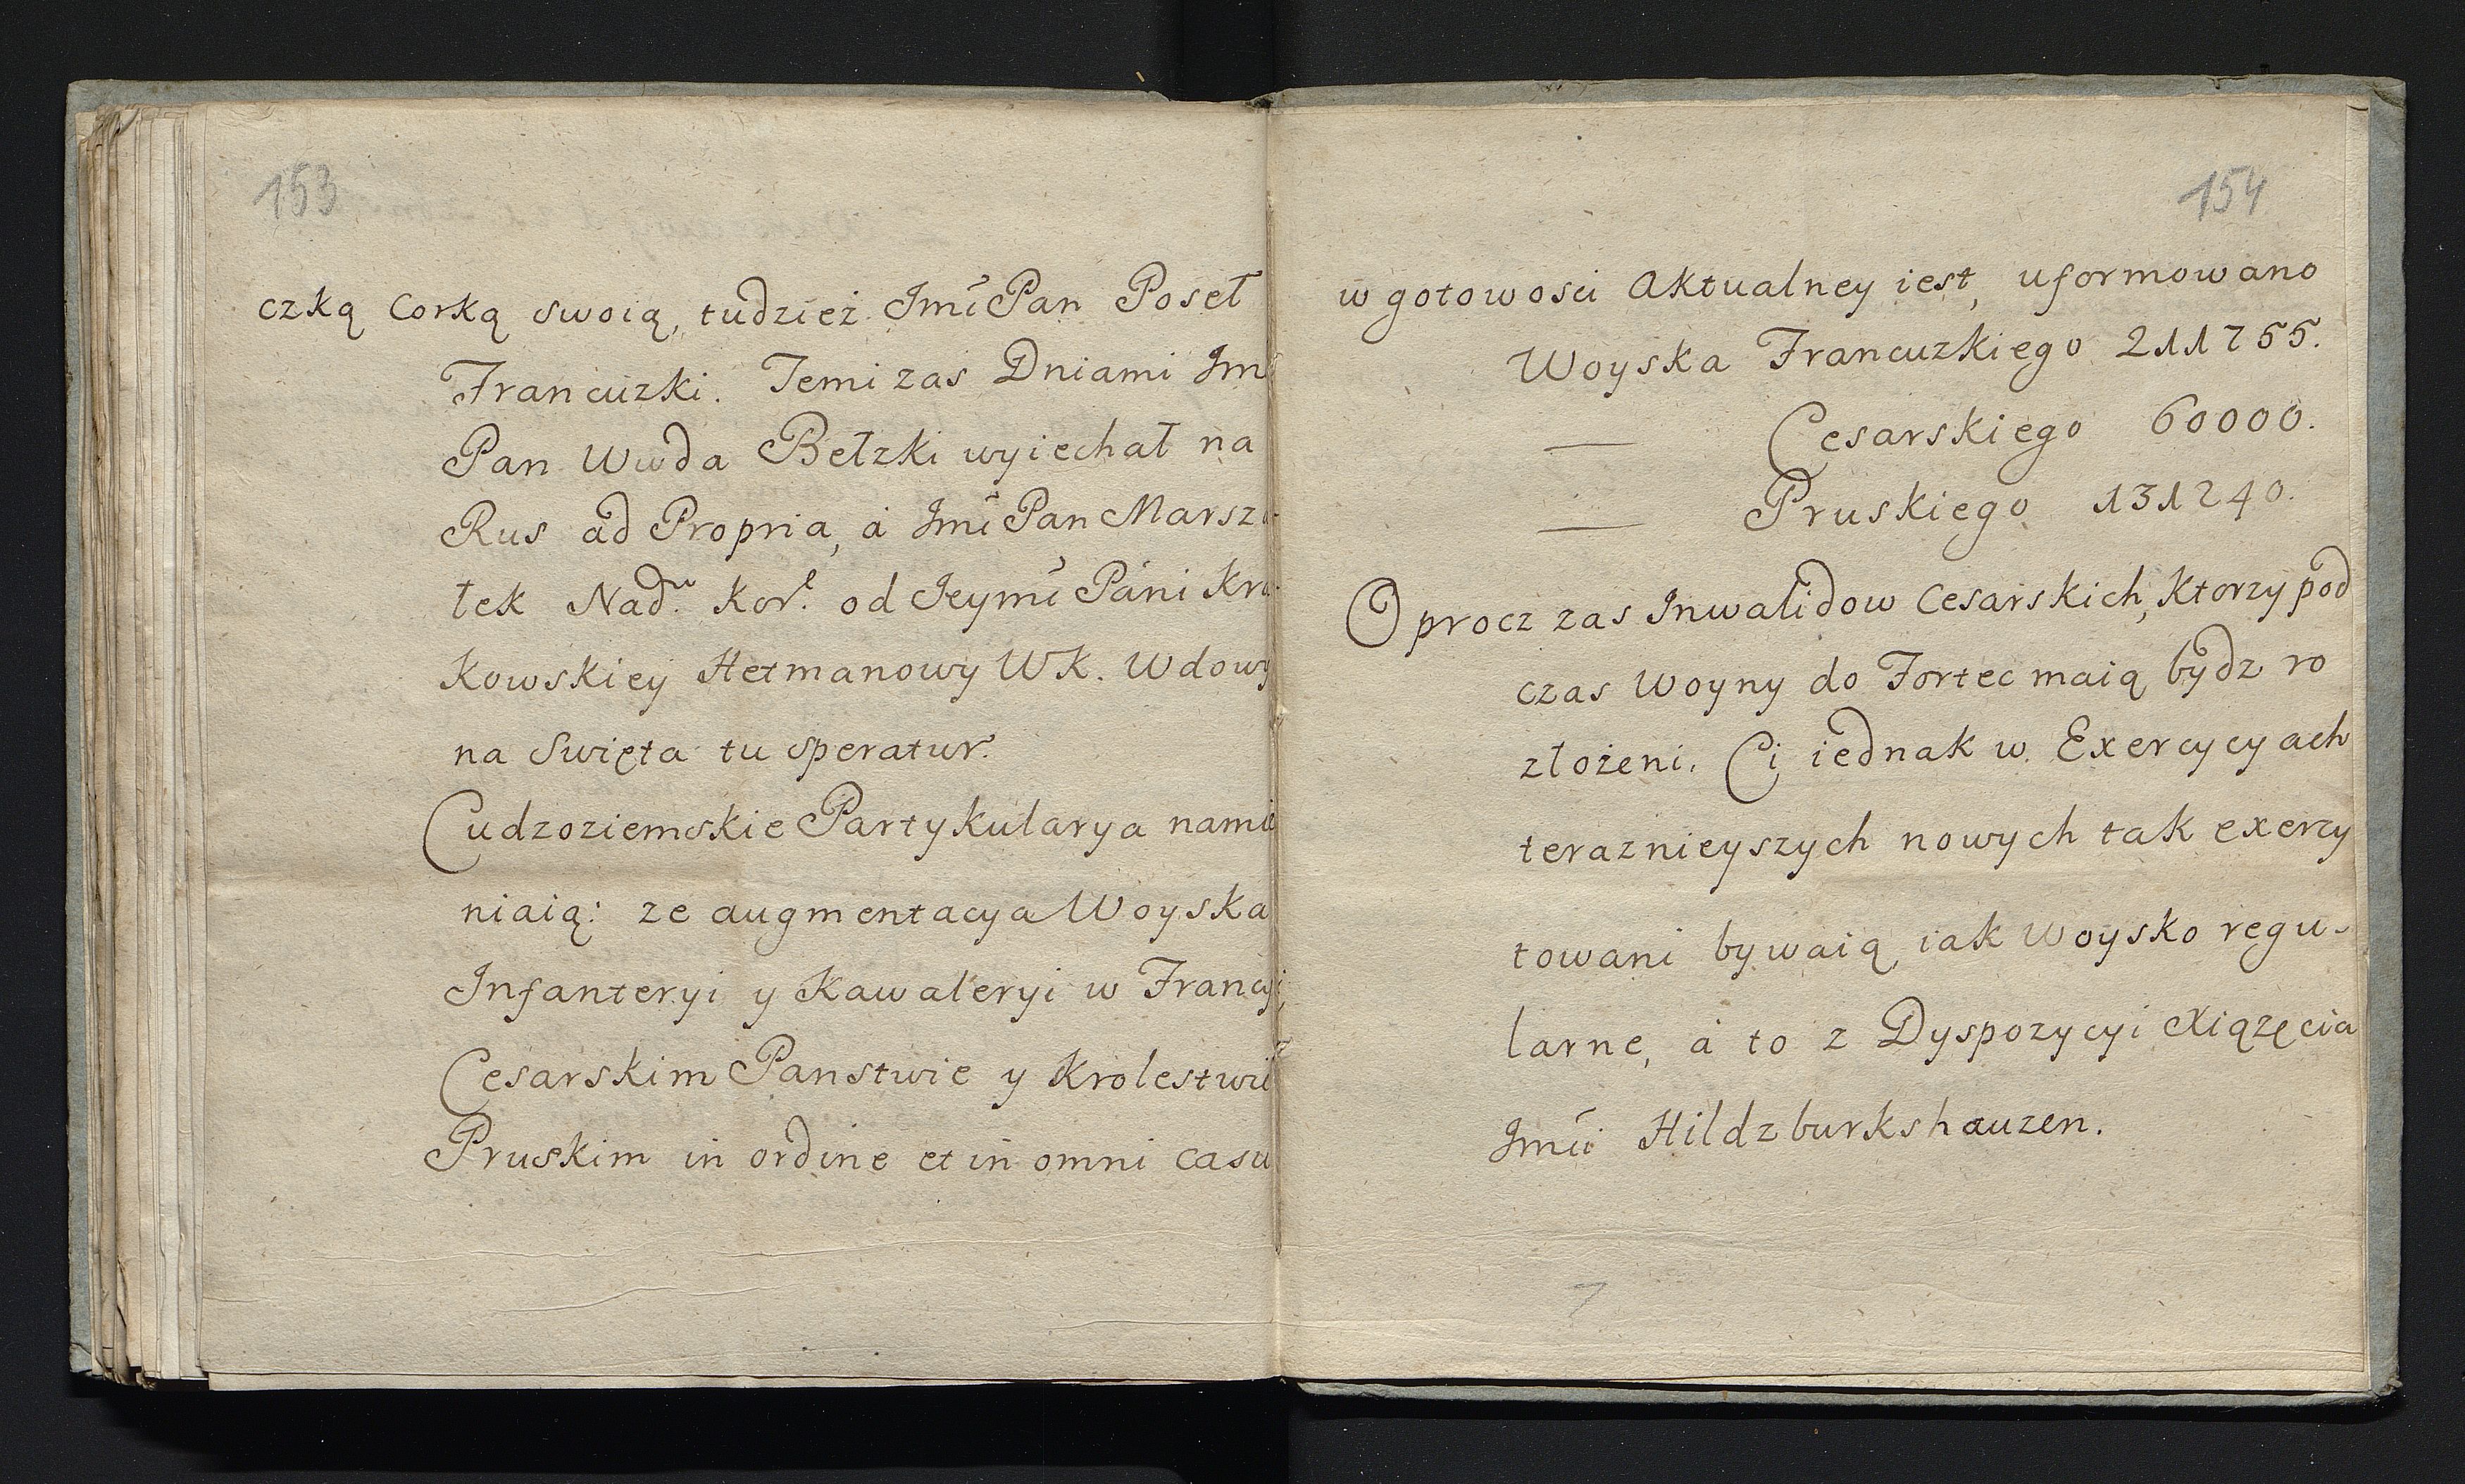 153
czką Corką swoią, tudzież Jmć Pan Poseł
Francuzki. Temi zas Dniami Jmć
Pan Wwda Bełzki wyiechał na
Rus ad Propria, á Jmć Pan Marsza-
łek Nadw. Kor. od Jeymć Páni Kra-
kowskiey Hetmanowy WK. Wdowy
na Swięta tu speratur.
Cudzoziemskie Partykularya namie
niaią: ze augmentacya Woyska
Infanteryi y Kawaleryi w Francyi,
Cesarskim Panstwie y Krolestwie
Pruskim in ordine et in omni casu
154
w gotowosci Aktualney iest, uformowano
Woyska Francuzkiego 211755.
— Cesarskiego 60000.
— Pruskiego 131240.
Oprocz zas Inwalidow Cesarskich, Ktorzy pod
czas Woyny do Fortec maią bydz ro
złożeni. Ci iednak w Exercycyach
teraznieyszych nowych tak exercy
towani bywaią iak Woysko regu-
larne, á to z Dyspozycyi Xiązęcia
Jmći Hildzburkshauzen.
7